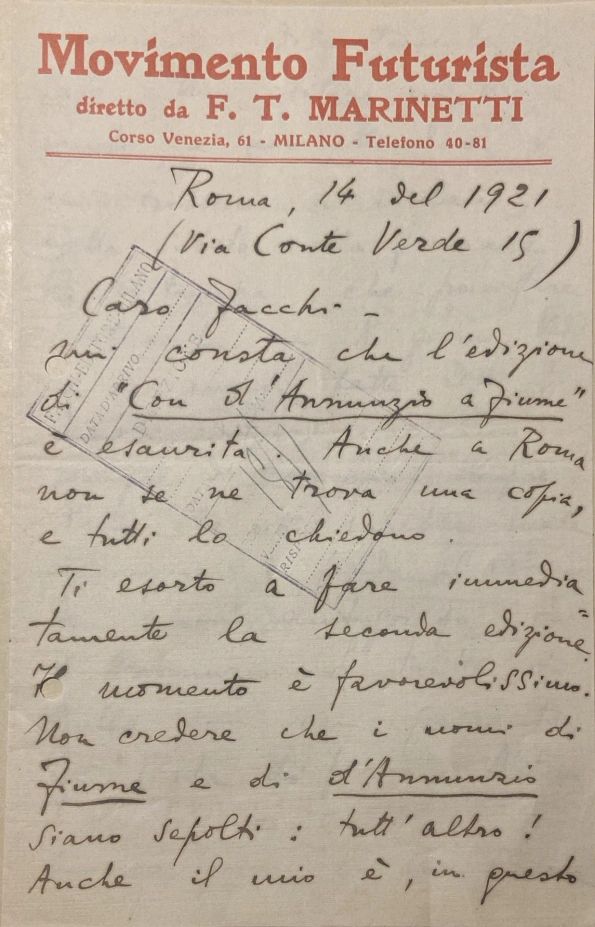 Movimento Futurista
diretto da F. T. MARINETTI
Corso Venezia, 61 - MILANO - Telefono 40-81
Roma, 14 del 1921
(Via Conte Verde 15)
Caro Facchi -
mi consta che l'edizione
di "Con d'Annunzio a Fiume"
è esaurita. Anche a Roma
non se ne trova una copia,
e tutti lo chiedono.
Ti esorto a fare immedia=
tamente la seconda edizione.
Il momento è favorevolissimo.
Non credere che i nomi di
Fiume e di d'Annunzio
siano sepolti: tutt'altro!
Anche il mio è, in questo
MILANO
DATA D'ARRIVO